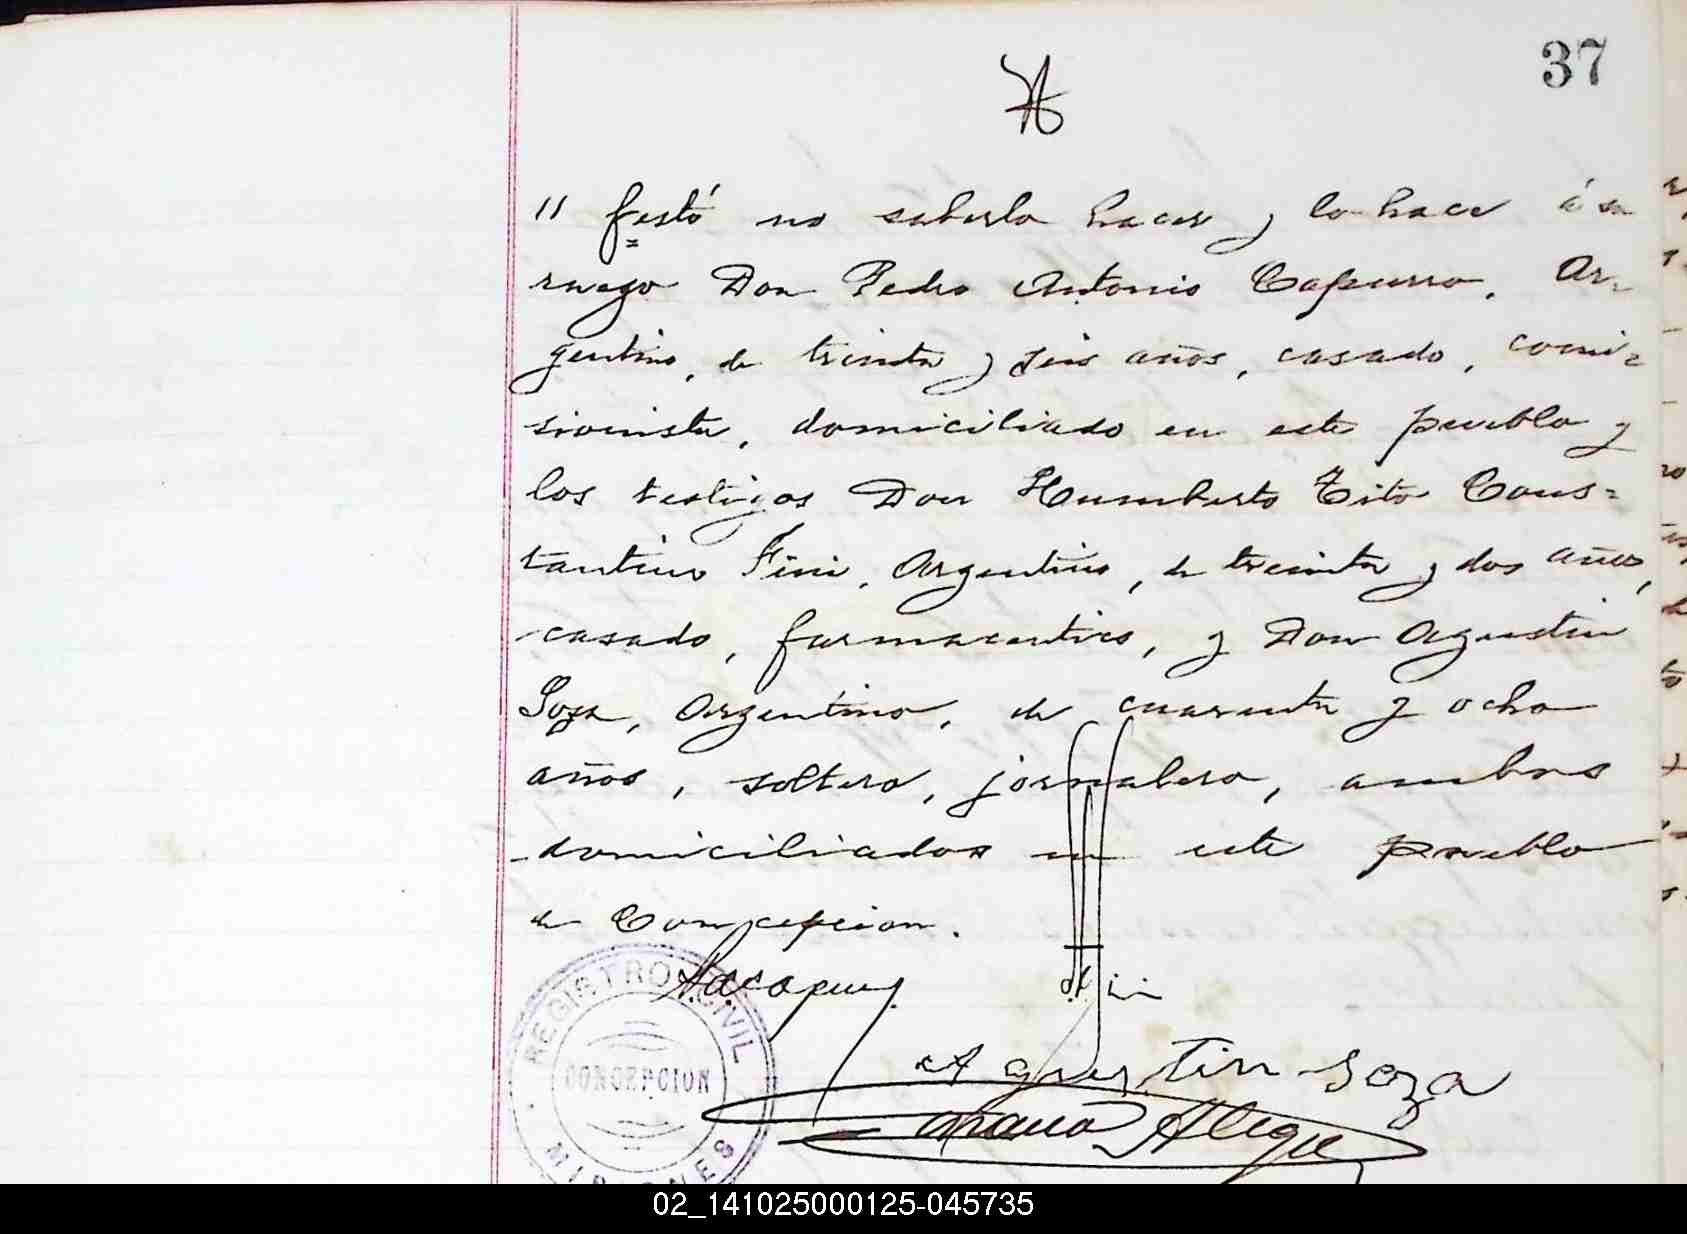 37
" festó no saberlo hacer y lo hace á su
ruego Don Pedro Antonio Capurro, Ar-
gentino, de treinta y seis años, casado, comi=
sionista, domiciliado en este pueblo y
los testigos Don Humberto Tito Cons=
tantino Fini, Argentino, de treinta y dos años,
casado, farmaceutico, y Don Agustin
Soza, Argentino, de cuarenta y ocho
años, soltero, jornalero, ambos
domiciliados en este pueblo
de Concepcion.
REGISTRO CIVIL
CONCEPCION
MISIONES
Agustin Soza
Alegre
02_141025000125-045735